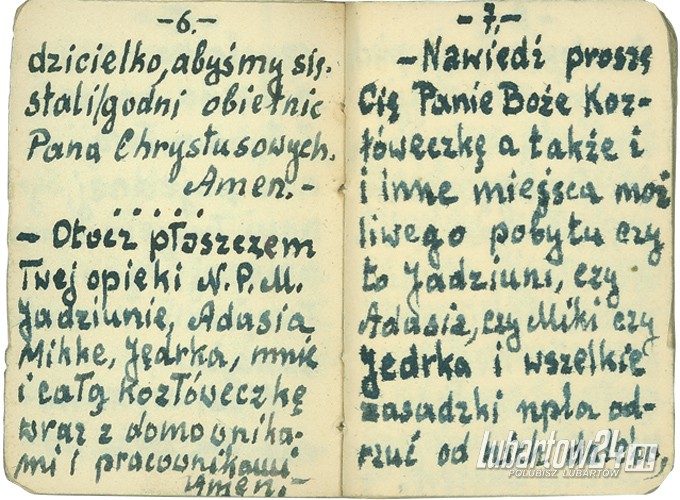 -6.-
dzicielko, abyśmy się
stali godni obietnic
Pana Chrystusowych.
Amen.-
- Otocz płaszczem
Twej opieki N.P.M.
Jadziunie, Adasia
Mikke, Jędrka, mnie
i całą Kozłóweczkę
wraz z domownika-
mi i pracownikami
Amen.-
-7.-
- Nawiedź proszę
Cię Panie Boże Koz-
łóweczkę a także i
i inne miejsca moż
liwego pobytu czy
to Jadziuni, czy
Adasia, czy Miki czy
Jędrka i wszelkie
zasadzki npla od-
rzuć od
lubartow24.pl
POLUBISZ LUBARTÓW